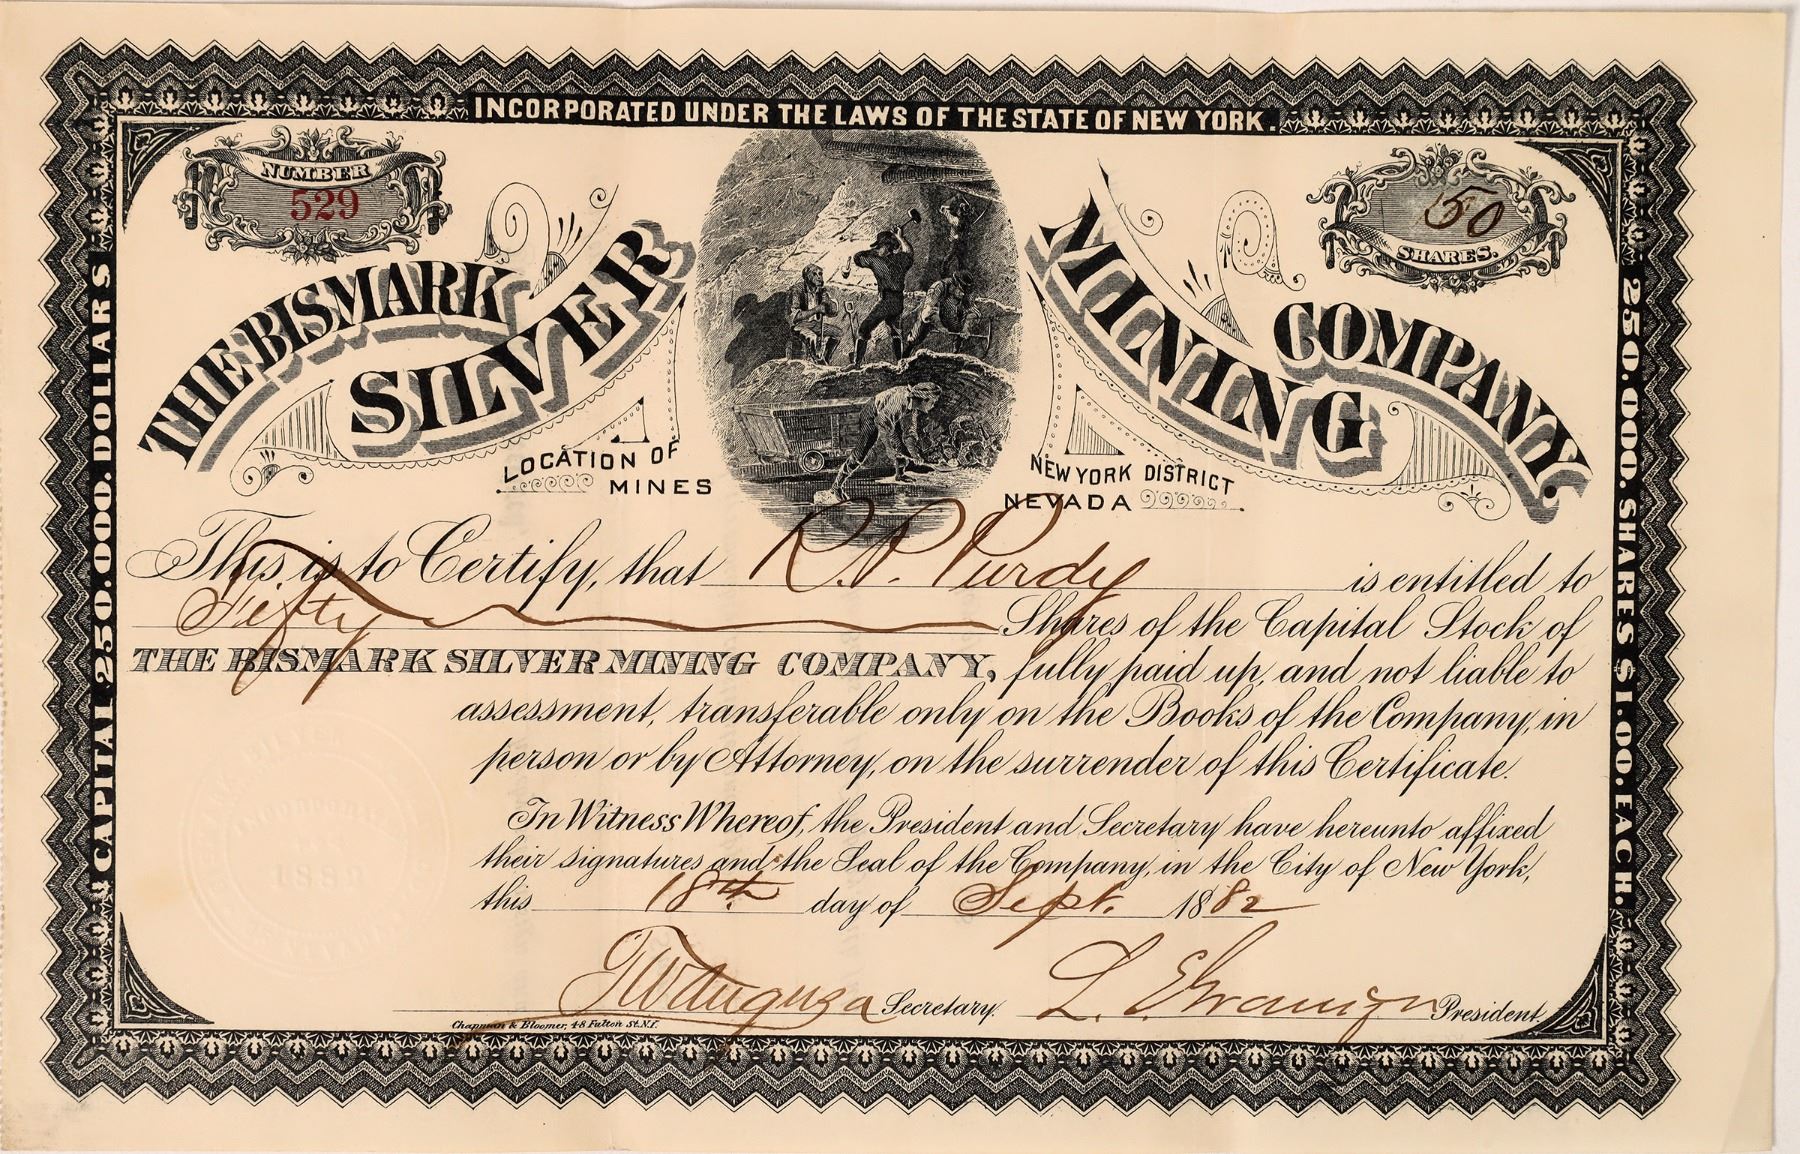 INCORPORATED UNDER THE LAWS OF THE STATE OF NEW YORK.
NUMBER
529
50
SHARES.
THE BISMARK
SILVER
MINING
COMPANY.
LOCATION OF
MINES
NEW YORK DISTRICT
NEVADA
CAPITAL 250.000. DOLLARS
250.000. SHARES $1.00. EACH.
This is to Certify, that R. N. Purdy is entitled to
Fifty Shares of the Capital Stock of
THE BISMARK SILVER MINING COMPANY, fully paid up, and not liable to
assessment, transferable only on the Books of the Company, in
person or by Attorney, on the surrender of this Certificate.
In Witness Whereof, the President and Secretary have hereunto affixed
their signatures and the Seal of the Company, in the City of New York,
this 18th day of Sept. 1882
Secretary. President.
Chapman & Bloomer, 48 Fulton St. N.Y.
1882